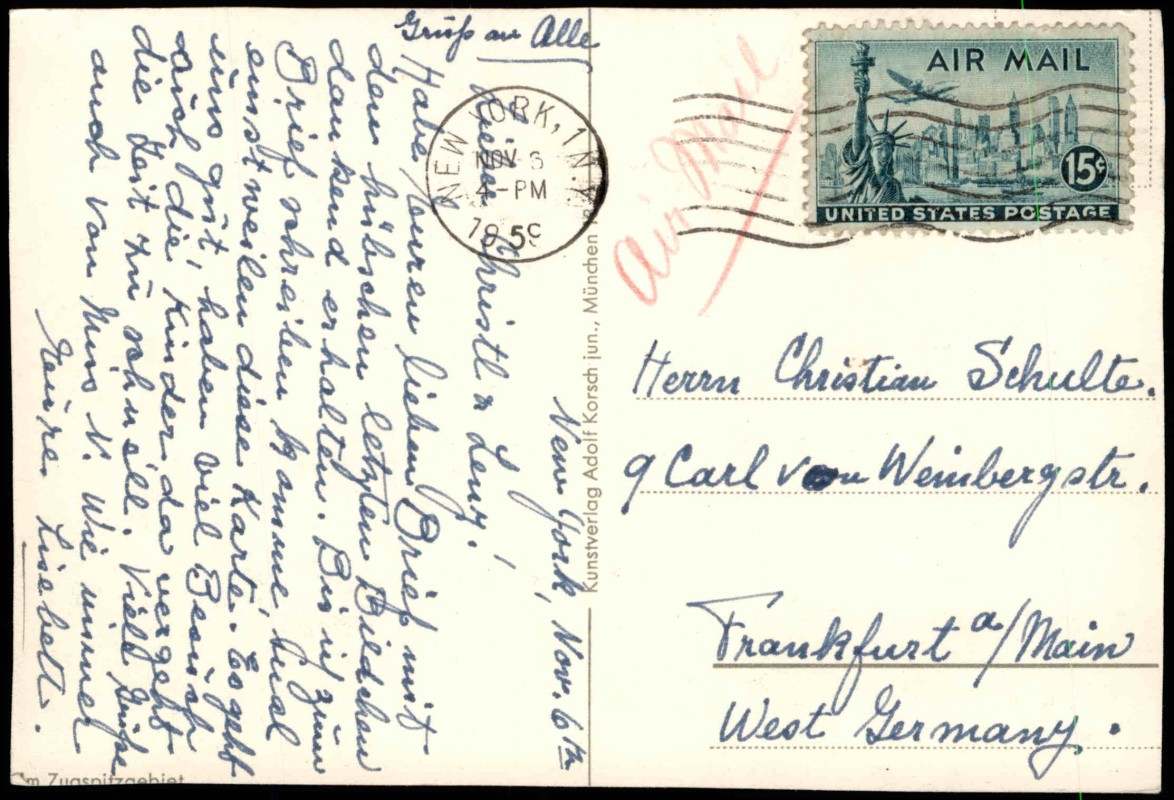 Gruß an Alle
New York, Nov. 6th
Liebe Christl & Leny!
Habe Euren lieben Brief mit
den hübschen letzten Bildchen
dankend erhalten. Bis ich zum
Brief schreiben komme, mal
einstweilen diese Karte. Es geht
uns gut, haben viel Besuch
auch die Kinder da vergeht
die Zeit zu schnell. Viele Grüße
auch von Miss N. Wie immer
Eure Lisebett.
Im Zugspitzgebiet
Kunstverlag Adolf Korsch jun., München
NEW YORK, 1 N.Y.
NOV 6
4-PM
195
Air Mail
AIR MAIL
15¢
UNITED STATES POSTAGE
Herrn Christian Schulte.
9 Carl von Weinbergstr.
Frankfurt a/Main
West Germany.